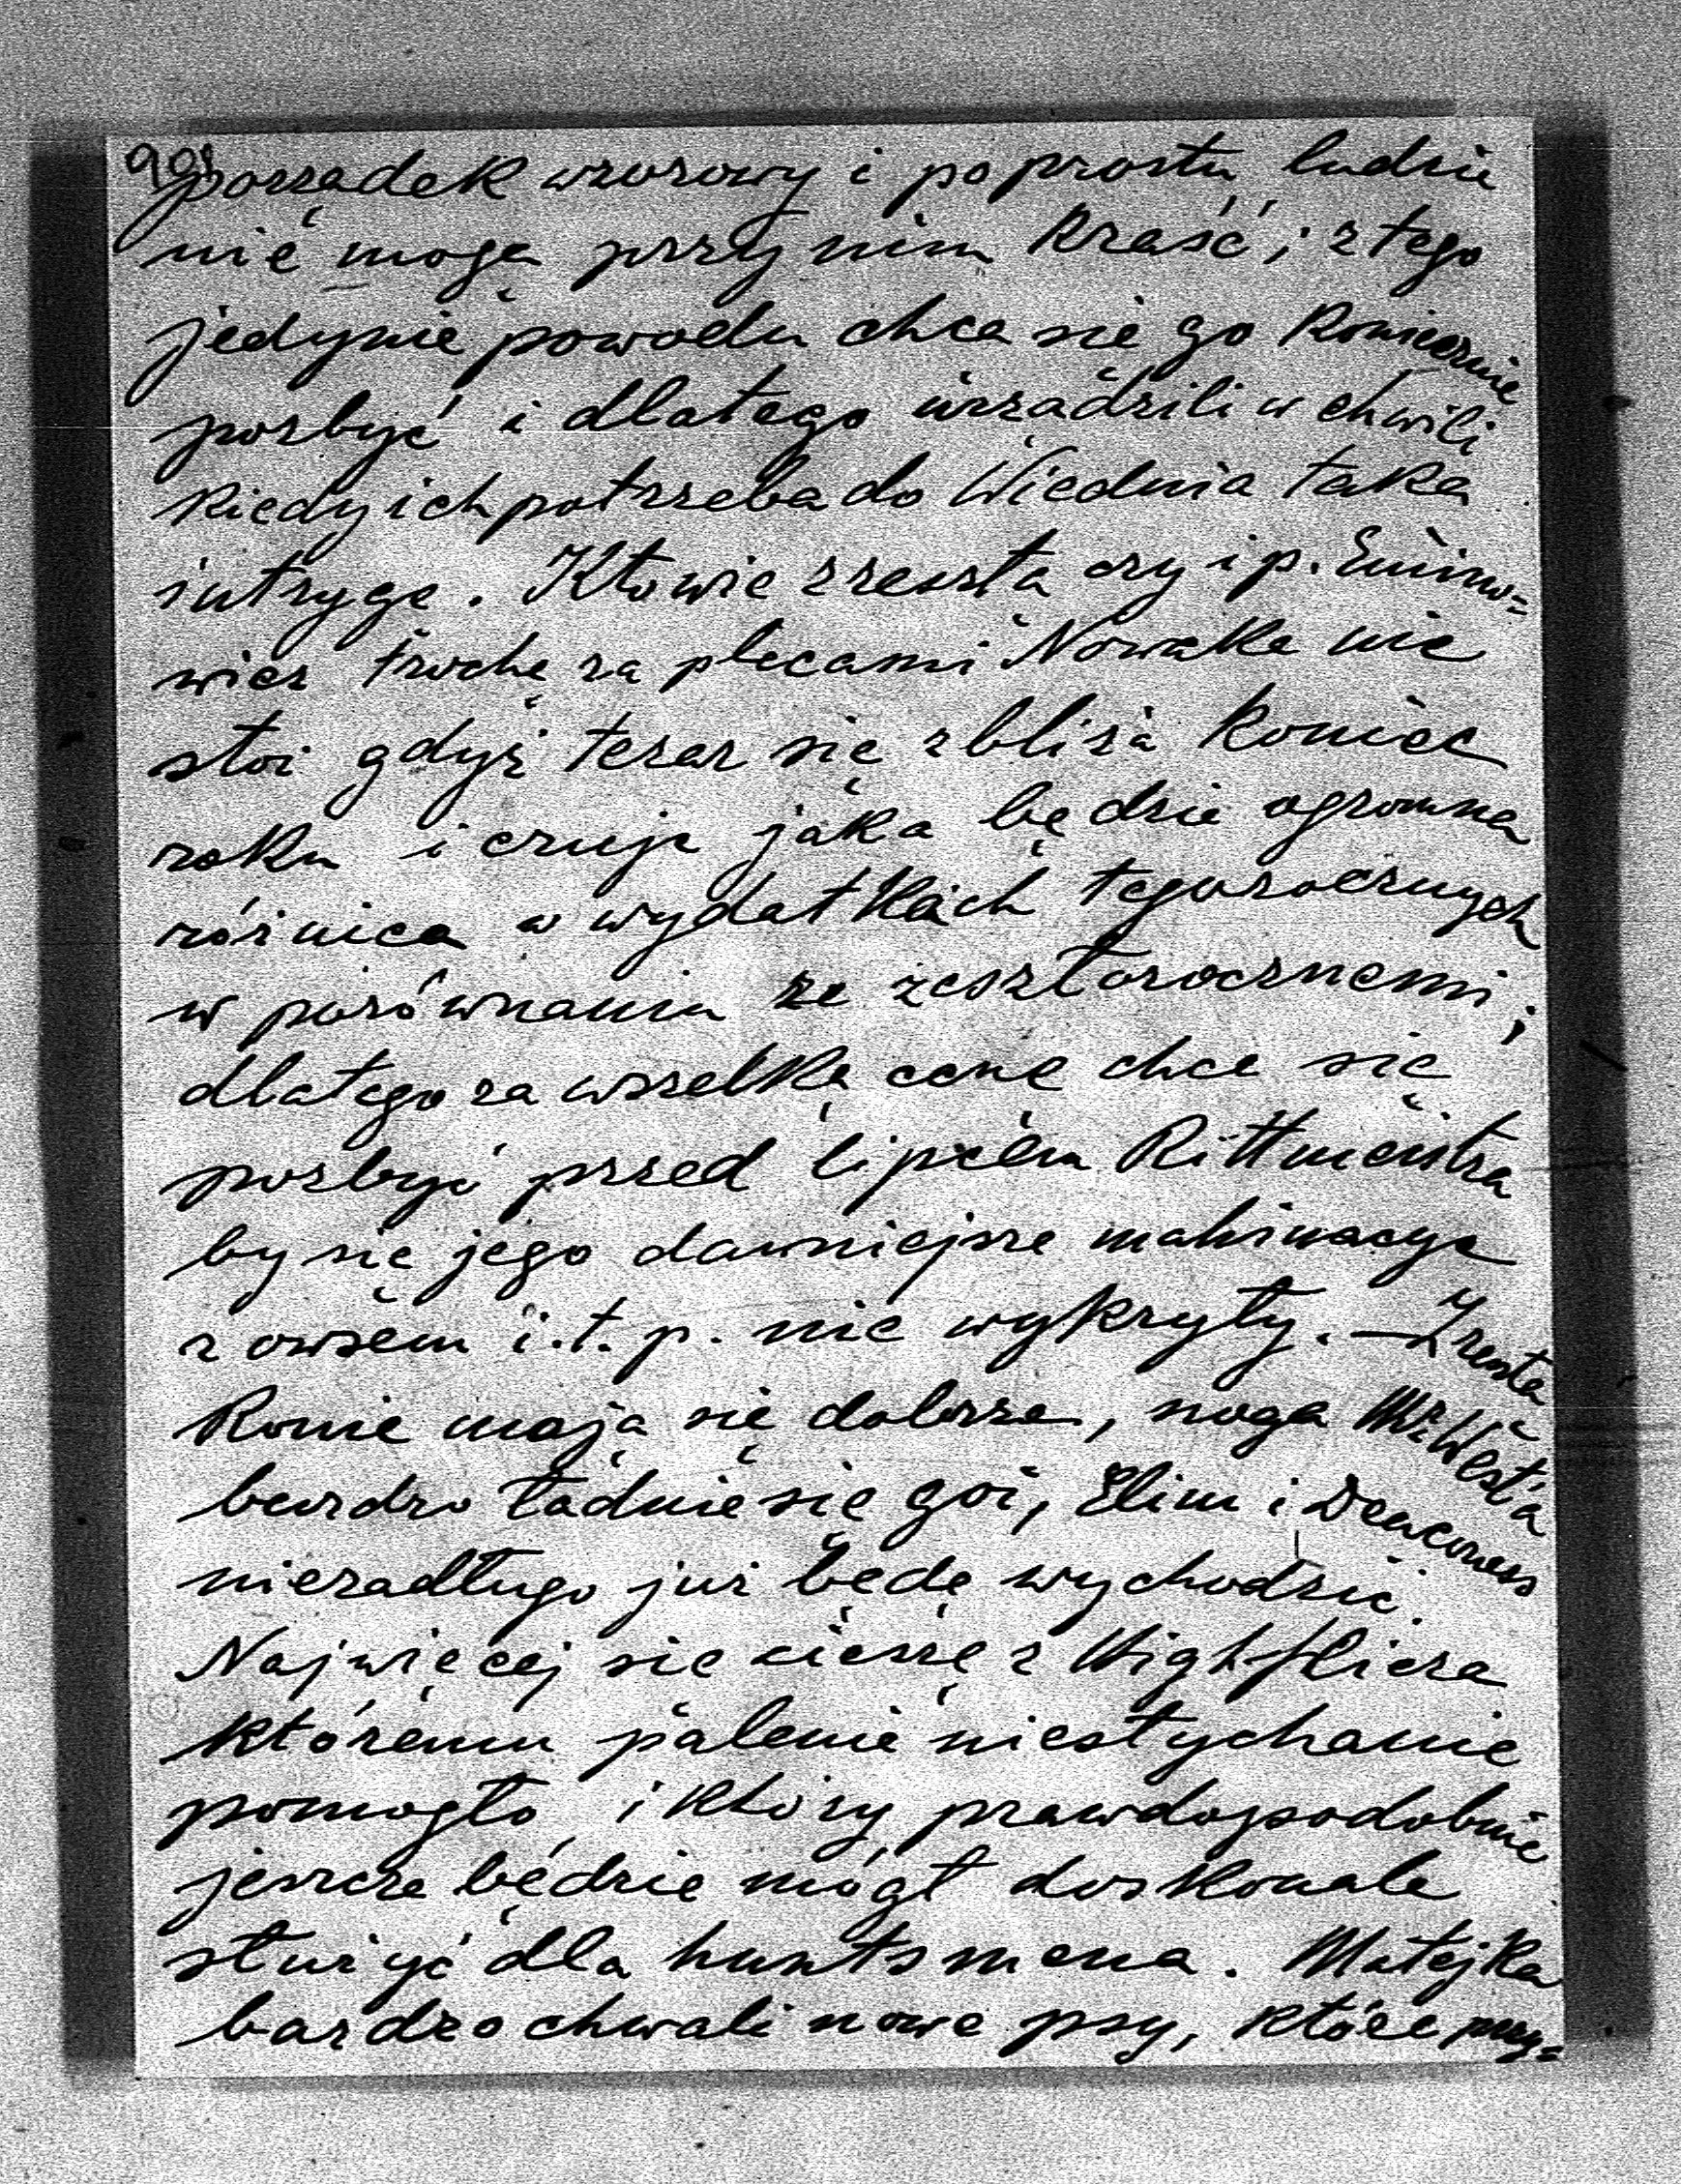 porządek wzorowy i po prostu ludzie
nie mogą przy nim kraść; z tego
jedynie powodu chcą się go koniecznie
pozbyć i dlatego urządzili w chwili
kiedy ich potrzeba do Wiednia taką
intrygę. Kto wie zresztą czy i p.
wicz trochę za plecami Nowaka nie
stoi gdyż teraz się zbliża koniec
roku i czuje jaka będzie ogromna
różnica w wydatkach tegorocznych
w porównaniu ze zeszłorocznemi;
dlatego za wszelką cenę chce się
pozbyć przed lipcem Rittmeistra
by się jego dawniejsze mahinacye
z owsem i.t.p. nie wykryły. — Zresztą
konie mają się dobrze, noga Mr West'a
bardzo ładnie się goi, Elim i Deaconess
niezadługo już będą wychodzić.
Najwięcej się cieszę z Highfliera
któremu palenie niesłychanie
pomogło i który prawdopodobnie
jeszcze będzie mógł doskonale
służyć dla huntsmena. Matejka
bardzo chwali nowe psy, które przy=